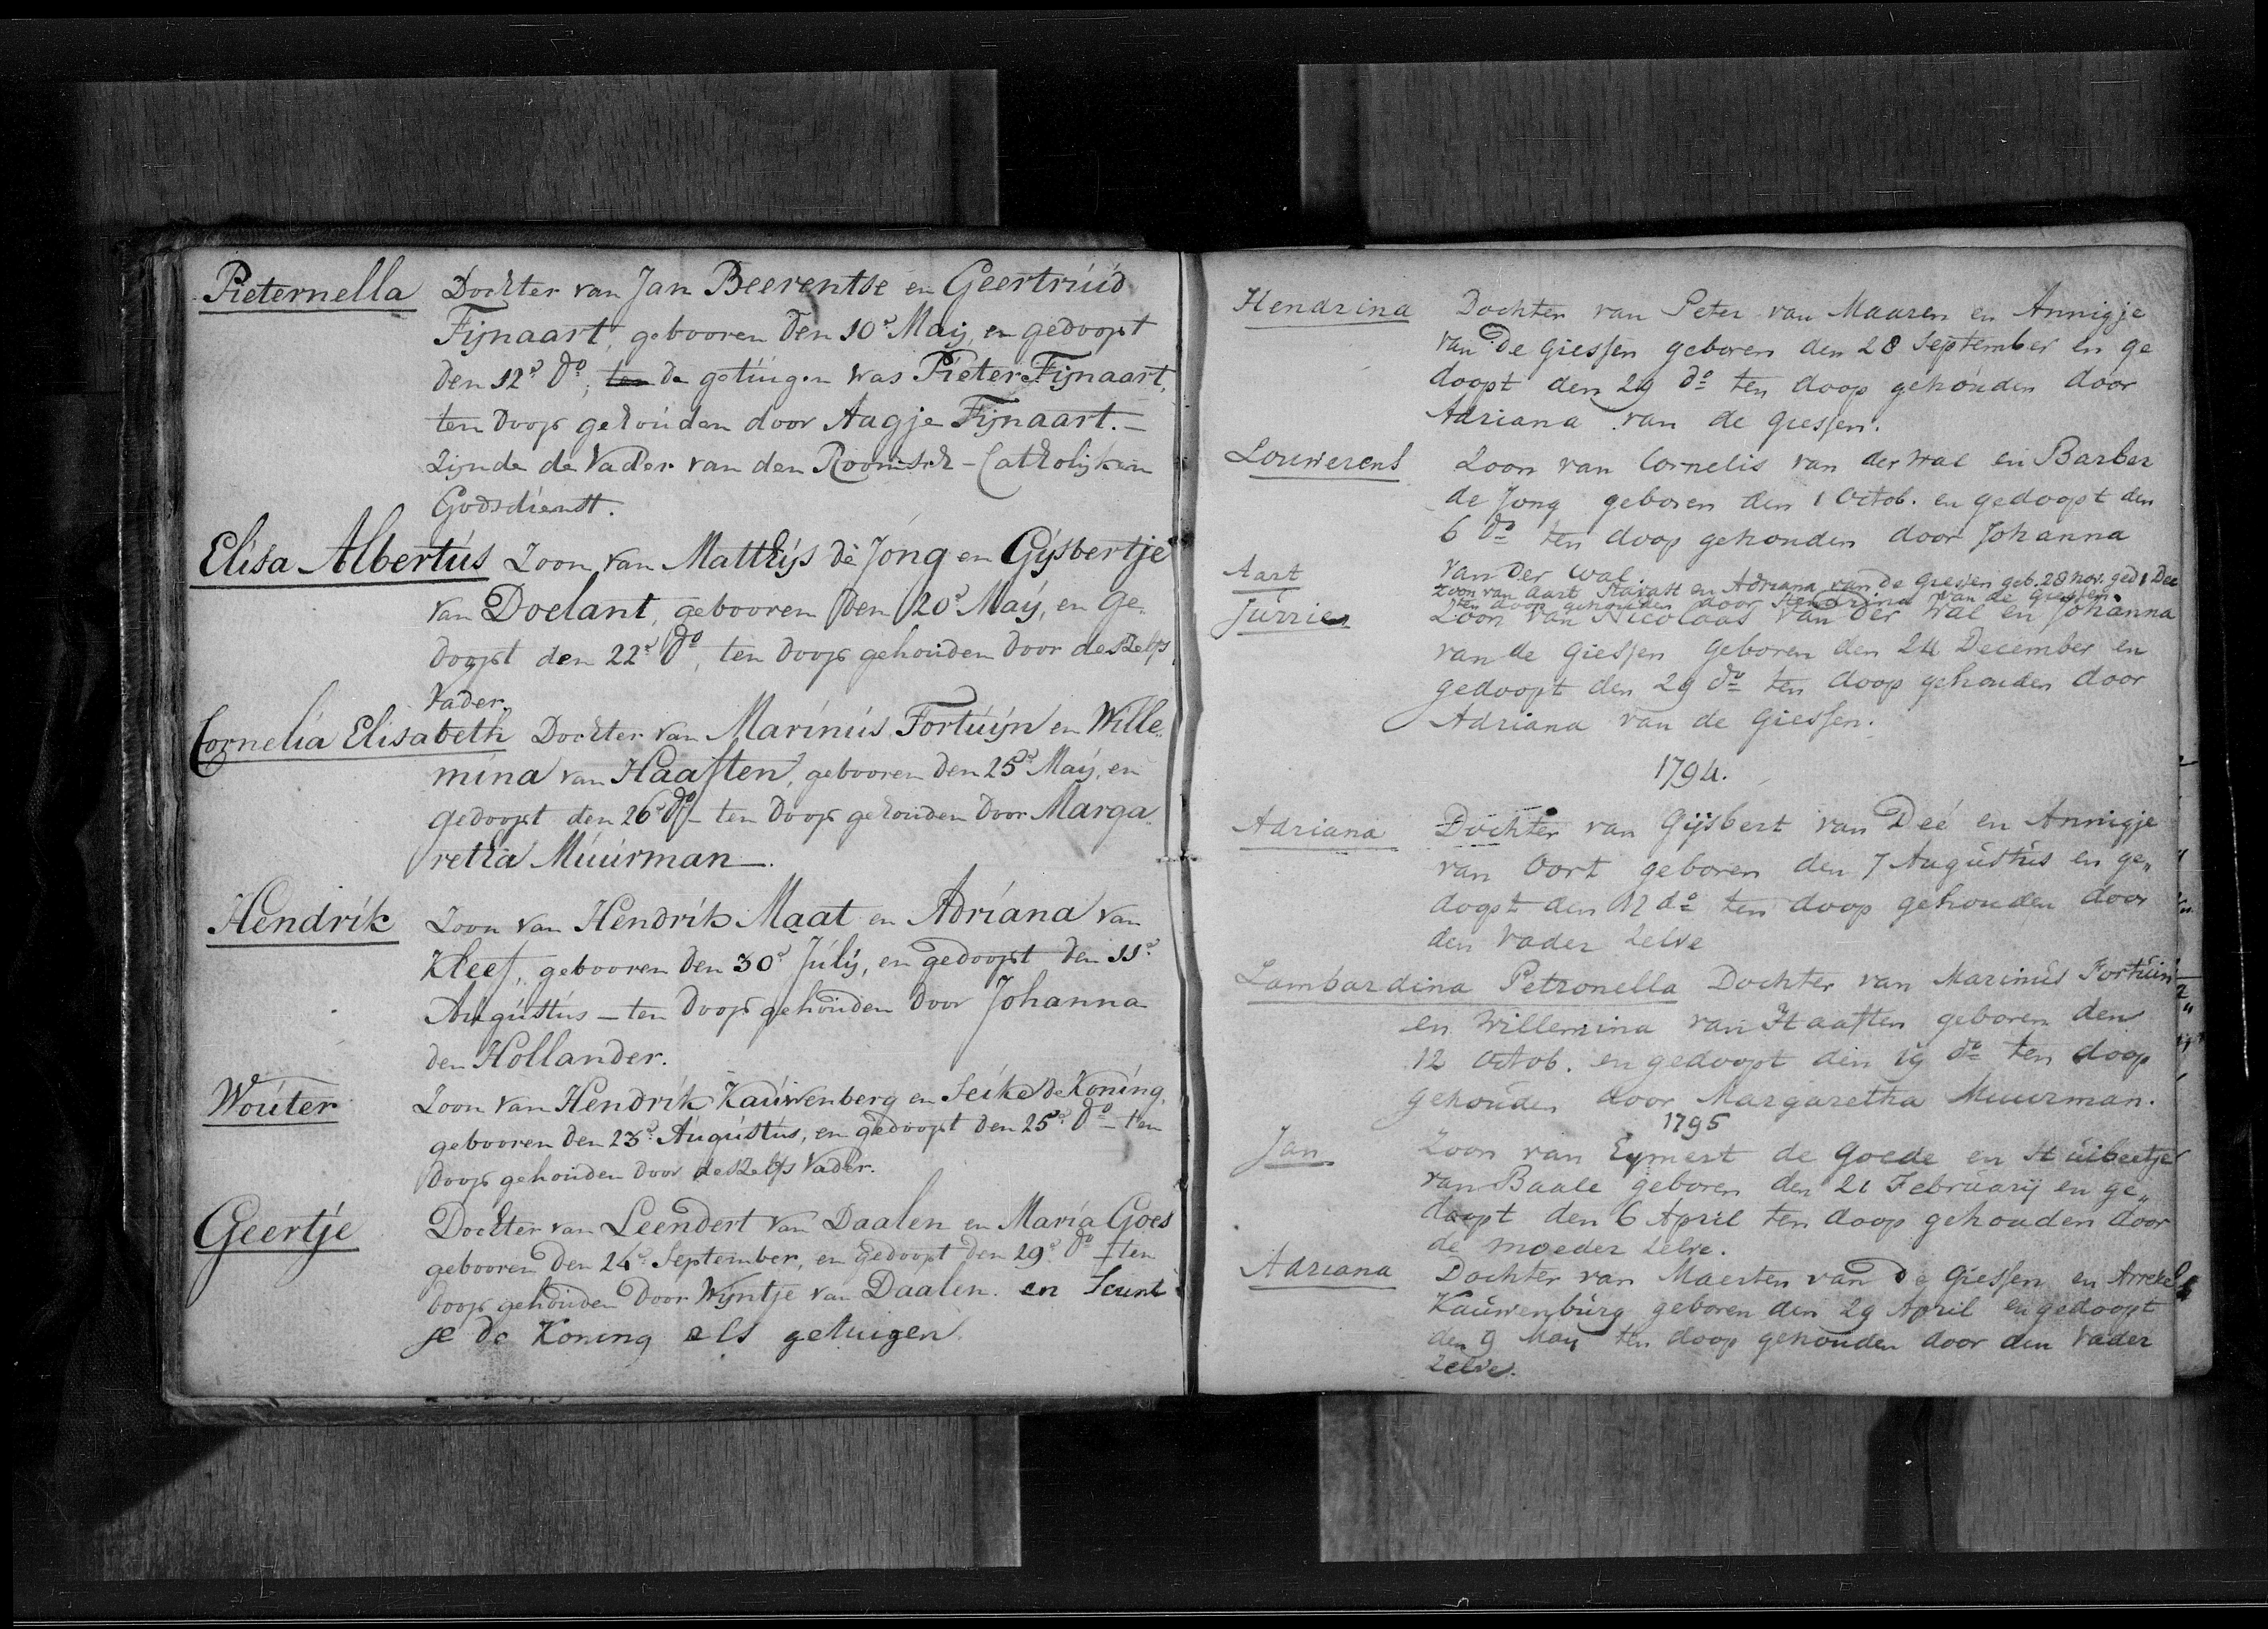 Pieternella Dochter van Jan Beerentse en Geertruid
Fijnaart, gebooren den 10e Maij, en gedoopt
den 12e do, ten de getuigen was Pieter Fijnaart,
ten doop gehouden door Aagje Fijnaart. —
Zijnde de Vader van den Roomsch-Catholijken
Godsdienst.
Elisa Albertus Zoon van Matthijs de Jong en Gijsbertje
van Doelant, gebooren den 20e Maij, en ge-
doopt den 22e do, ten doop gehouden door deszelfs
Vader.
Cornelia Elisabeth Dochter van Marinus Fortuijn en Wille-
mina van Haaften, gebooren den 25e Maij, en
gedoopt den 26e do — ten doop gehouden door Marga-
retha Muurman —.
Hendrik Zoon van Hendrik Maat en Adriana van
Kleef, gebooren den 30e Julij, en gedoopt den 11e
Augustus — ten doop gehouden door Johanna
den Hollander.
Wouter Zoon van Hendrik Kauwenberg en Seike de Koning,
gebooren den 23e Augustus, en gedoopt den 25e do — ten
doop gehouden door deszelfs Vader.
Geertje Dochter van Leendert van Daalen en Maria Goes
gebooren den 26e September, en gedoopt den 29e do — ten
doop gehouden door Wijntje van Daalen. en Teunt
je de Koning als getuigen
Hendrina Dochter van Peter van Maaren en Annigje
van de Giessen geboren den 28 September en ge
doopt den 29 do ten doop gehouden door
Adriana van de Giessen.
Louwerens Zoon van Cornelis van der Wal en Barber
de Jong geboren den 1 Octob. en gedoopt den
6 do ten doop gehouden door Johanna
van der Wal.
Aart zoon van Aart en Adriana van de Giessen geb. 28 nov. ged 1 Dec
ten doop gehouden door Hendrina van de Giessen.
Jurrie Zoon van Nicolaas van der Wal en Johanna
van de Giessen geboren den 24 December en
gedoopt den 29 do ten doop gehouden door
Adriana van de Giessen.
1794.
Adriana Dochter van Gijsbert van Deé en Annigje
van Oort geboren den 7 Augustus en ge„
doopt den 12 do ten doop gehouden door
den Vader Zelve
Lambardina Petronella Dochter van Marinus Fortuin
en Willemina van Haaften geboren den
12 Octob. en gedoopt den 19 do ten doop
gehouden door Margaretha Muurman.
1795
Jan Zoon van Eymert de Goede en Huibertje
van Baale geboren den 21 Februarij en ge„
doopt den 6 April ten doop gehouden door
de moeder Zelve.
Adriana Dochter van Maerten van de Giessen en
Kauwenburg geboren den 29 April en gedoopt
den 9 May ten doop gehouden door den Vader
Zelve.